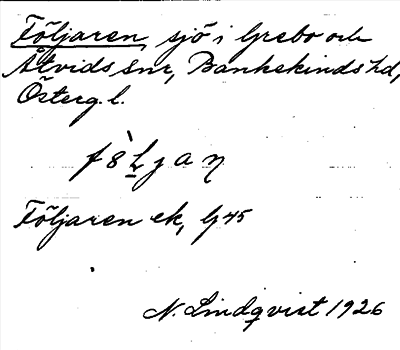 Följaren, sjö i Grebo och
Åtvids snr, Bankekinds hd,
Österg. l.
Följaren ek, G 45
N. Lindqvist 1926